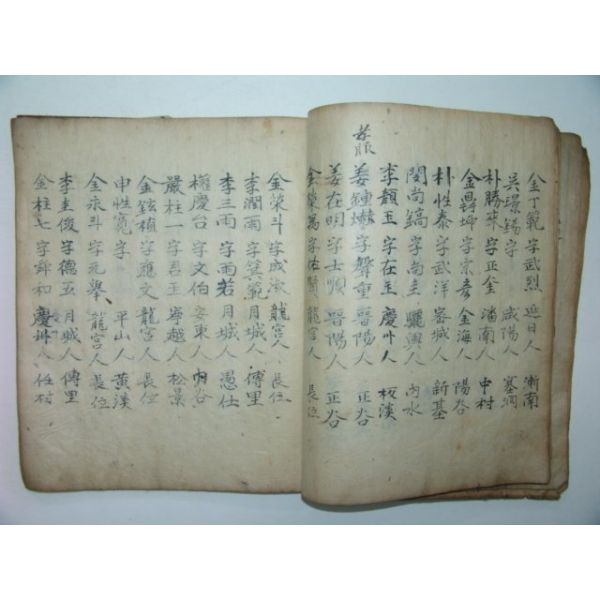 金丁範 字武烈 延日人 浙南
吳璟錫 字 咸陽人 塞洞
朴勝來 字正金 潘南人 中村
金鼎坤 字宗彦 金海人 陽谷
朴性泰 字武洋 密城人 新基
閔尚鎬 字尚圭 驪興人 內水
李顯玉 字在玉 慶州人 板溪
姜鍾 字聲重 晉陽人 正谷
姜在明 字士順 晉陽人 正谷
金榮萬 字佑賢 龍宮人 長位
金榮斗 字成淑 龍宮人 長位
李潤雨 字箕範 月城人 傳里
李三雨 字雨若 月城人 愚仕
權慶台 字文伯 安東人 谷
嚴柱一 字君玉 寧越人 松景
金鉉植 字應文 龍宮人 長位
申性寬 字 平山人 黃溪
金永斗 字元舉 龍宮人 長位
李圭俊 字德五 月城人 傳里
金柱七 字舜和 慶州人 任村